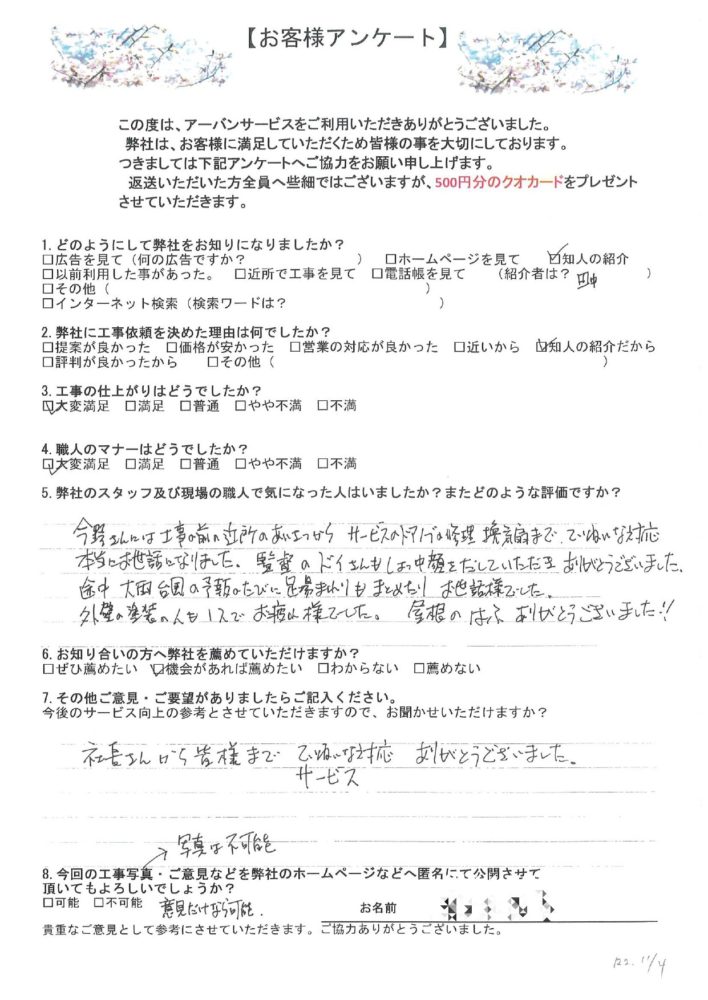 【お客様アンケート】
この度は、アーバンサービスをご利用いただきありがとうございました。
弊社は、お客様に満足していただくため皆様の事を大切にしております。
つきましては下記アンケートへご協力をお願い申し上げます。
返送いただいた方全員へ些細ではございますが、500円分のクオカードをプレゼント
させていただきます。
1.どのようにして弊社をお知りになりましたか?
□広告を見て（何の広告ですか?　）　□ホームページを見て　☑知人の紹介
□以前利用した事があった。　□近所で工事を見て　□電話帳を見て　（紹介者は?　田中　）
□その他（　）
□インターネット検索（検索ワードは?　）
2.弊社に工事依頼を決めた理由は何でしたか?
□提案が良かった　□価格が安かった　□営業の対応が良かった　□近いから　☑知人の紹介だから
□評判が良かったから　□その他（　）
3.工事の仕上がりはどうでしたか?
☑大変満足　□満足　□普通　□やや不満　□不満
4.職人のマナーはどうでしたか?
☑大変満足　□満足　□普通　□やや不満　□不満
5.弊社のスタッフ及び現場の職人で気になった人はいましたか?またどのような評価ですか?
今野さんには工事の前の近所のあいさつから サービスのドアノブの修理 換気扇まで、ていねいな対応
本当にお世話になりました。監督のドイさんもしょっ中顔をだしていただき ありがとうございました。
途中 大雨台風の予報のたびに足場まわりもまとめたり お世話様でした。
外壁の塗装の人も1人でお疲れ様でした。 屋根の はふ ありがとうございました!!
6.お知り合いの方へ弊社を薦めていただけますか?
□ぜひ薦めたい　☑機会があれば薦めたい　□わからない　□薦めない
7.その他ご意見・ご要望がありましたらご記入ください。
今後のサービス向上の参考とさせていただきますので、お聞かせいただけますか?
社長さんから皆様まで ていねいな対応 ありがとうございました。
サービス
→写真は不可能
8.今回の工事写真・ご意見などを弊社のホームページなどへ匿名にて公開させて
頂いてもよろしいでしょうか?
□可能　□不可能　意見だけなら可能.　お名前
貴重なご意見として参考にさせていただきます。ご協力ありがとうございました。
R2. 11/4